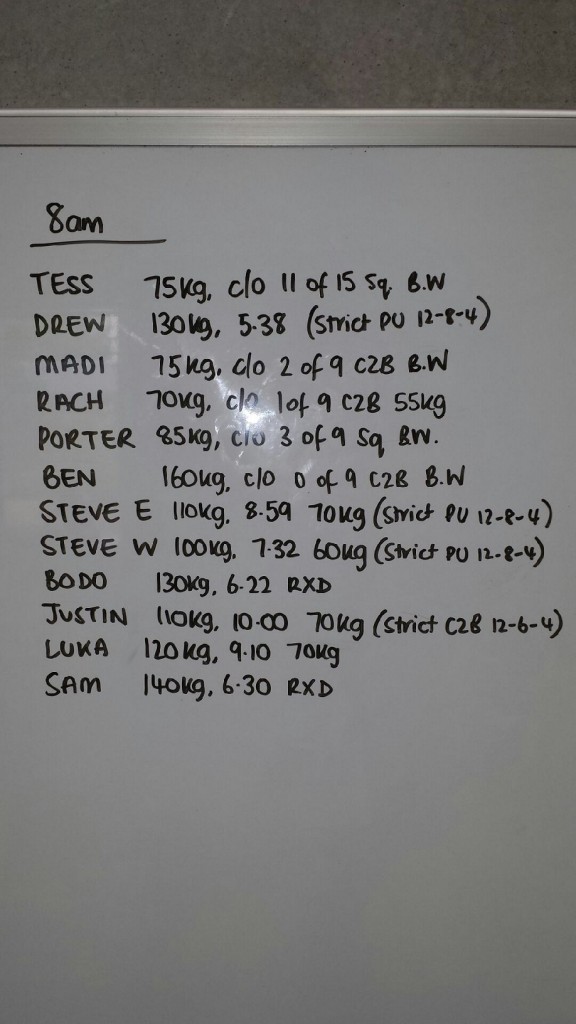 8am
TESS 75kg, c/o 11 of 15 Sq B.W
DREW 130kg, 5.38 (Strict PU 12-8-4)
MADI 75kg, c/o 2 of 9 C2B B.W
RACH 70kg, c/o 1 of 9 C2B 55kg
PORTER 85kg, c/o 3 of 9 Sq BW.
BEN 160kg, c/o 0 of 9 C2B B.W
STEVE E 110kg, 8.59 70kg (Strict PU 12-8-4)
STEVE W 100kg, 7.32 60kg (Strict PU 12-8-4)
BODO 130kg, 6.22 RXD
JUSTIN 110kg, 10.00 70kg (Strict C2B 12-6-4)
LUKA 120kg, 9.10 70kg
SAM 140kg, 6.30 RXD